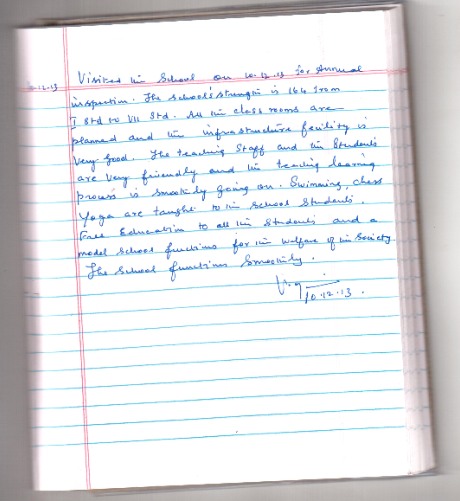 10.12.13 Visited the School on 10.12.13 for Annual
inspection. The school's strength is 164 from
I Std to VII Std. All the class rooms are
planned and the infrastructure facility is
very good. The teaching Staff and the Students
are very friendly and the teaching learning
process is smoothly going on. Swimming, chess
Yoga are taught to the school Students.
Free Education to all the Students and a
model school functions for the welfare of the Society
The School functions Smoothly.
10.12.13.